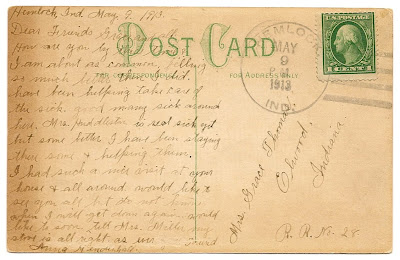 Hemlock, Ind. May. 9. 1913.
Dear Friends
How are you by
I am about as common, felling
so much better
have been helping take care of
the sick. good many sick around
here. Mrs. Huddleston is real sick yet
but some better I have been staying
there some & helping them.
I had such a nice visit at your
house & all around would like to
see you all but do not know
when I will get down again. would
like to soon. tell Mrs. Miller my
is all right as ever.
Anna
POST CARD
FOR CORRESPONDENCE
FOR ADDRESS ONLY
HEMLOCK
MAY
9
1913
IND.
U.S. POSTAGE
1 CENT 1
Mrs. Grace Thomas
Elwood,
Indiana
R. R. No. 28